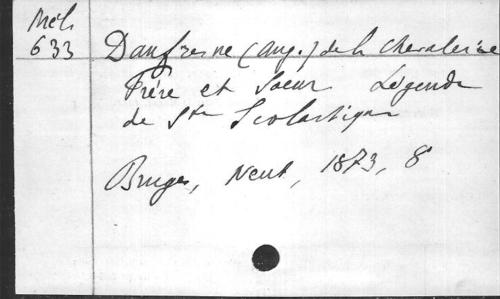 Mél.
633
Daufresne (Aug.) de la Chevalerie
Frère et Soeur Légende
de Ste Scolastique
Bruges, Neut, 1873, 8°